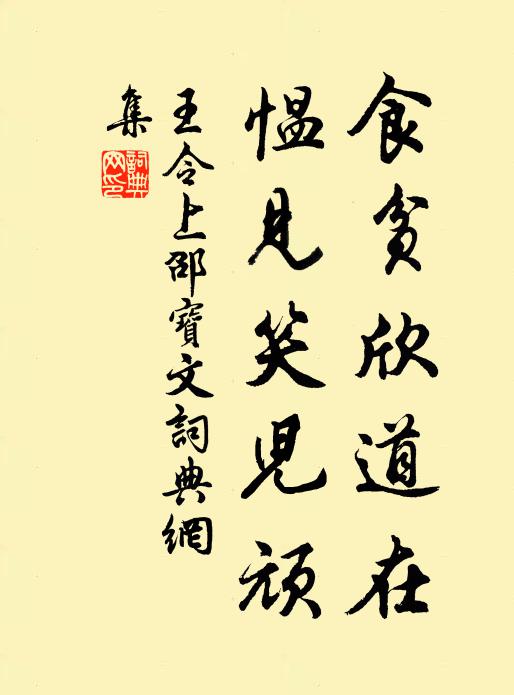 食貧欣道在
愠見笑兒頑
王令上邵寶文詞典網
集
詞典
网印